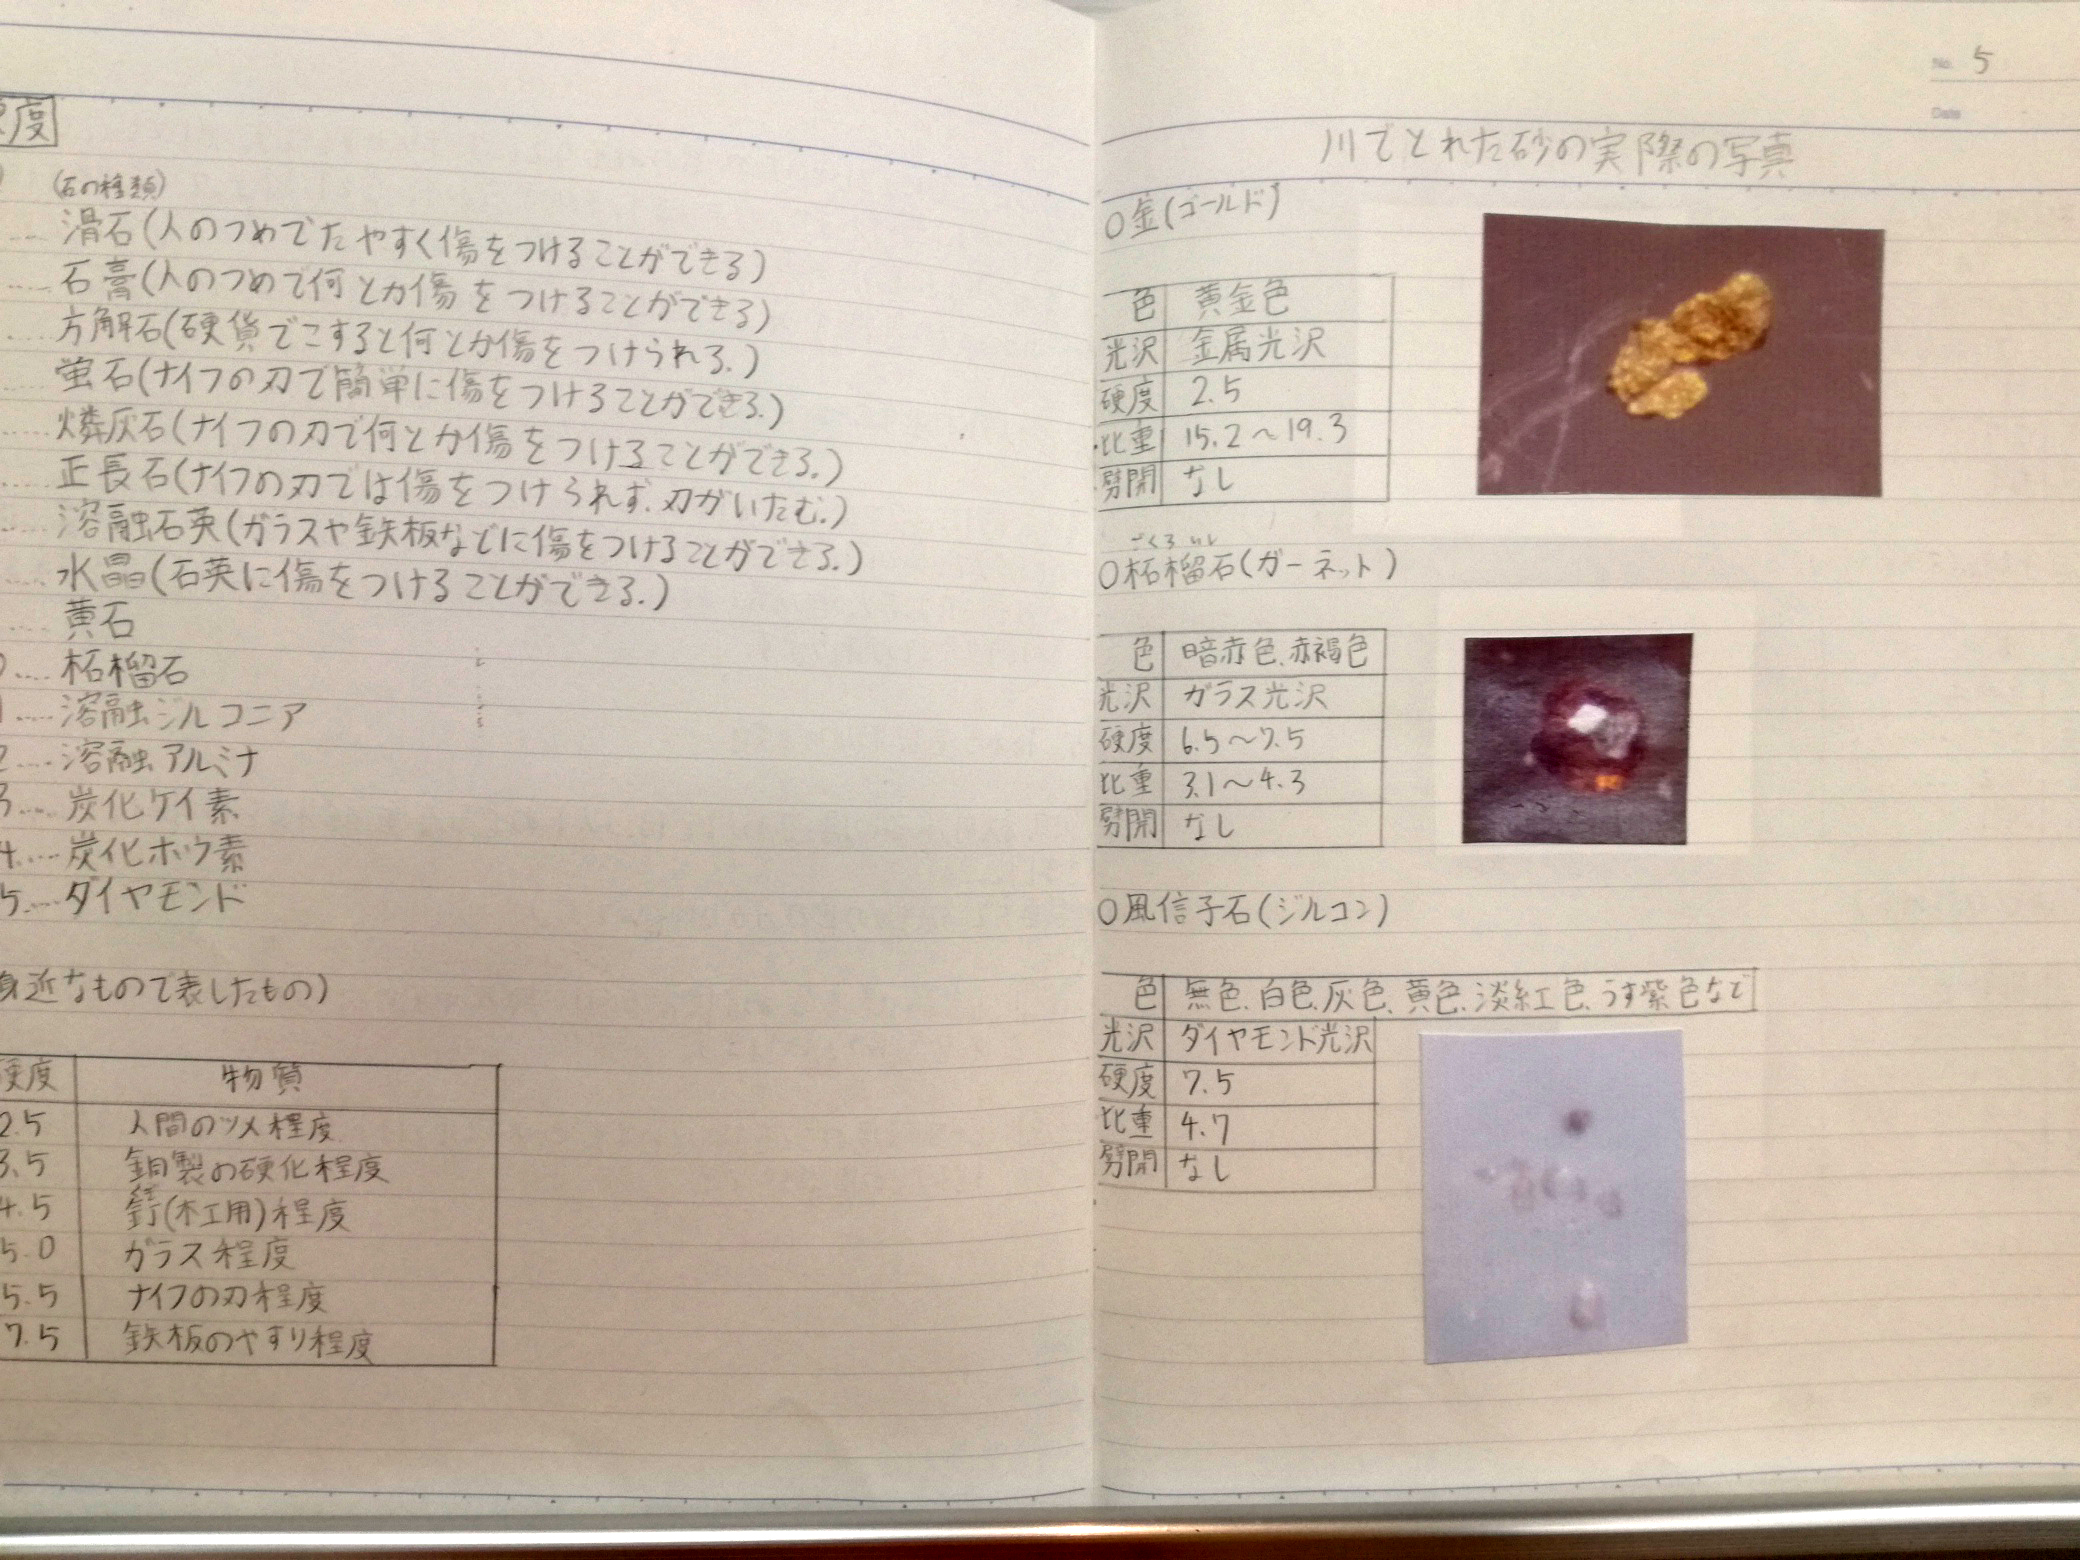 度
(石の種類)
.... 滑石(人のつめでたやすく傷をつけることができる)
.... 石膏(人のつめで何とか傷をつけることができる)
.... 方解石(硬貨でこすると何とか傷をつけられる.)
.... 蛍石(ナイフの刃で簡単に傷をつけることができる.)
.... 燐灰石(ナイフの刃で何とか傷をつけることができる.)
.... 正長石(ナイフの刃では傷をつけられず.刃がいたむ.)
.... 溶融石英(ガラスや鉄板などに傷をつけることができる.)
.... 水晶(石英に傷をつけることができる.)
.... 黄石
0.... 柘榴石
1.... 溶融ジルコニア
2.... 溶融アルミナ
3.... 炭化ケイ素
4.... 炭化ホウ素
5.... ダイヤモンド
身近なもので表したもの)
硬度 物質
2.5 人間のツメ程度
3.5 銅製の硬化程度
4.5 釘(木工用)程度
5.0 ガラス程度
5.5 ナイフの刃程度
7.5 鉄板のやすり程度
No. 5
Date
川でとれた砂の実際の写真
○金(ゴールド)
色 黄金色
光沢 金属光沢
硬度 2.5
比重 15.2〜19.3
劈開 なし
ざくろいし
○柘榴石(ガーネット)
色 暗赤色.赤褐色
光沢 ガラス光沢
硬度 6.5〜7.5
比重 3.1〜4.3
劈開 なし
○風信子石(ジルコン)
色 無色.白色.灰色.黄色.淡紅色.うす紫色など
光沢 ダイヤモンド光沢
硬度 7.5
比重 4.7
劈開 なし